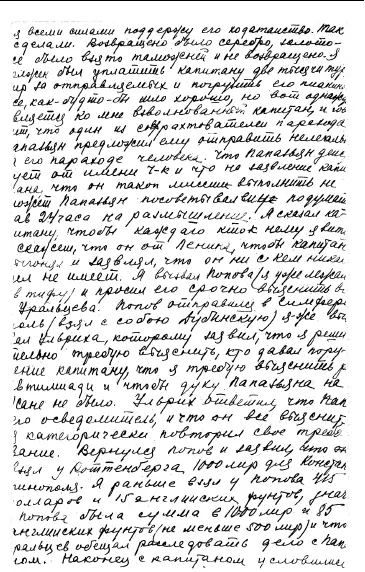 я всеми силами поддержу его ходатайство. Так
сделали. Возвращено было серебро, золото-
се было взято таможней и не возвращено. Я
должен был уплатить капитану две тысячи тур
ир за отправляемых и погрузить его пианино
се, как-будто-бы шло хорошо, но вот однажды
является ко мне взволнованный капитан и гово
ит, что один из софрахтователей парохода
апазьян предложил ему отправить нелегаль
на его пароходе человека. Что Папазьян дейс
ует от имени Ч-К и что на заявление капи
ана, что он такой миссии выполнить не
может Папазьян посоветывал еще подумат
ав 24 часа на размышление. Я сказал ка-
итану, чтобы каждаго кто к нему явит
скажет, что он от Ленина, чтобы капитан
выгонял и заявлял, что он ни с кем никак
ел не имеет. Я вызвал Попова/я уже лежал
в тифу/ и просил его срочно выяснить в
Уральцева. Попов отправился в Симферо
оль/взял с собою Дубинскую/ я-же выз
ал Ульриха, которому заявил, что я реши
тельно требую выяснить, кто давал пору-
ение капитану, что я требую выяснить р
втилиади и чтобы духу Папазьяна на
сане не было. Ульрих ответил, что Пап
его осведомитель, и что он все выяснит
Я категорически повторил свое требо
вание. Вернулся Попов и заявил, что он
взял у Коттенберга, 1000 лир для Констан
тинополя. Я раньше взял у Попова 425
олларов и 15 английских фунтов, знач
Попова была сумма в 1000 лир и 85
английских фунтов/не меньше 500 лир/ и что
ральцев обещал расследовать дело с Пап
ом. Наконец с капитаном условились